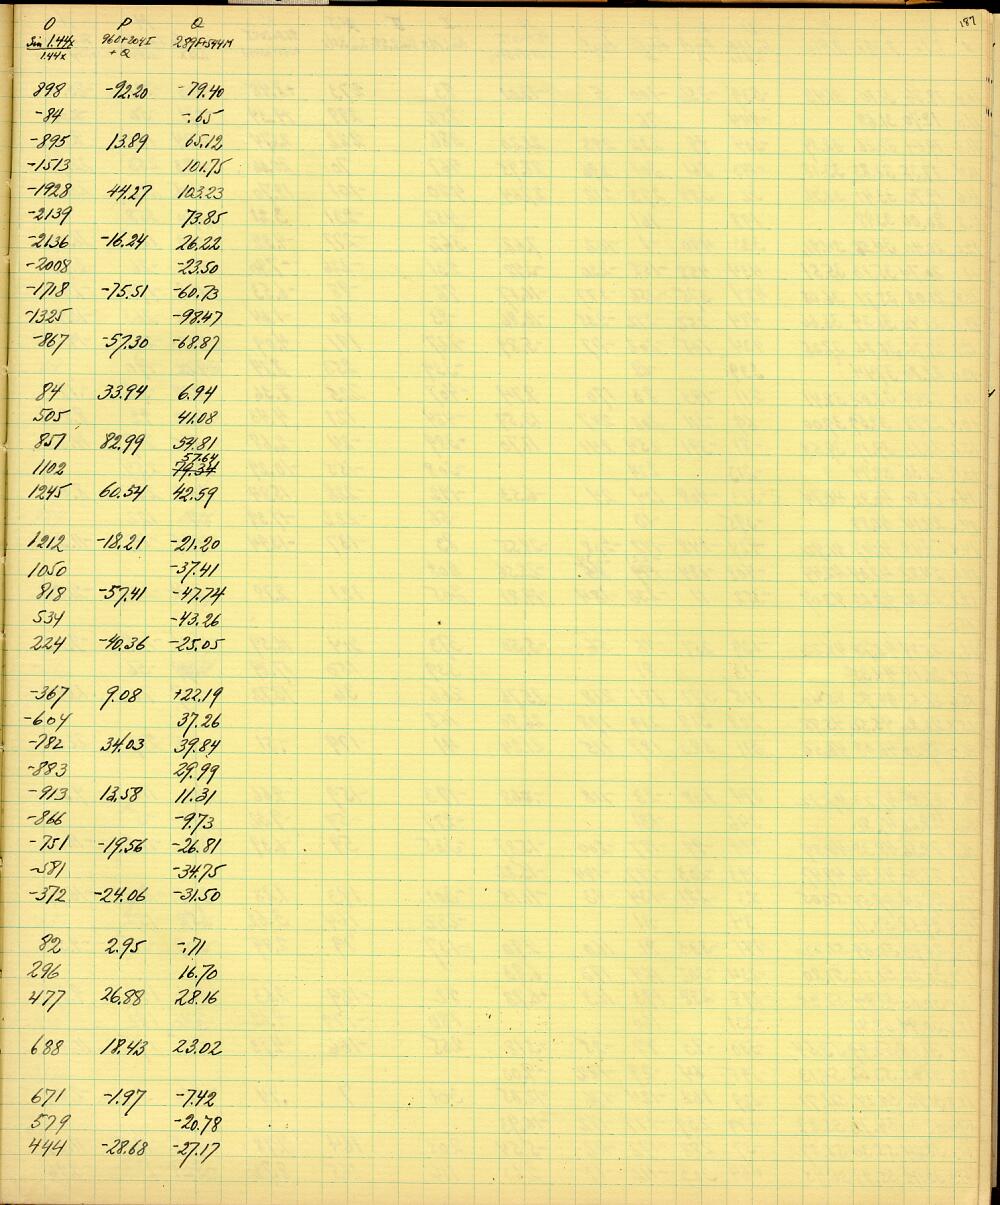 187
O P Q
Sin 1.44x 960+204I 289F+544M
1.44x + Q
898 -92.20 -79.40
-84 -.65
-895 13.89 65.12
-1513 101.75
-1928 44.27 103.23
-2139 73.85
-2136 -16.24 26.22
-2008 -23.50
-1718 -75.51 -60.73
-1325 -98.47
-867 -57.30 -68.87
84 33.94 6.94
505 41.08
851 82.99 54.81
57.64
1102 79.34
1245 60.54 42.59
1212 -18.21 -21.20
1050 -37.41
818 -57.41 -47.74
534 -43.26
224 -40.36 -25.05
-367 9.08 +22.19
-604 37.26
-782 34.03 39.84
-883 29.99
-913 13.58 11.31
-866 -9.73
-751 -19.56 -26.81
-581 -34.75
-372 -24.06 -31.50
82 2.95 -.71
296 16.70
477 26.88 28.16
688 18.43 23.02
671 -1.97 -7.42
579 -20.78
444 -28.68 -27.17